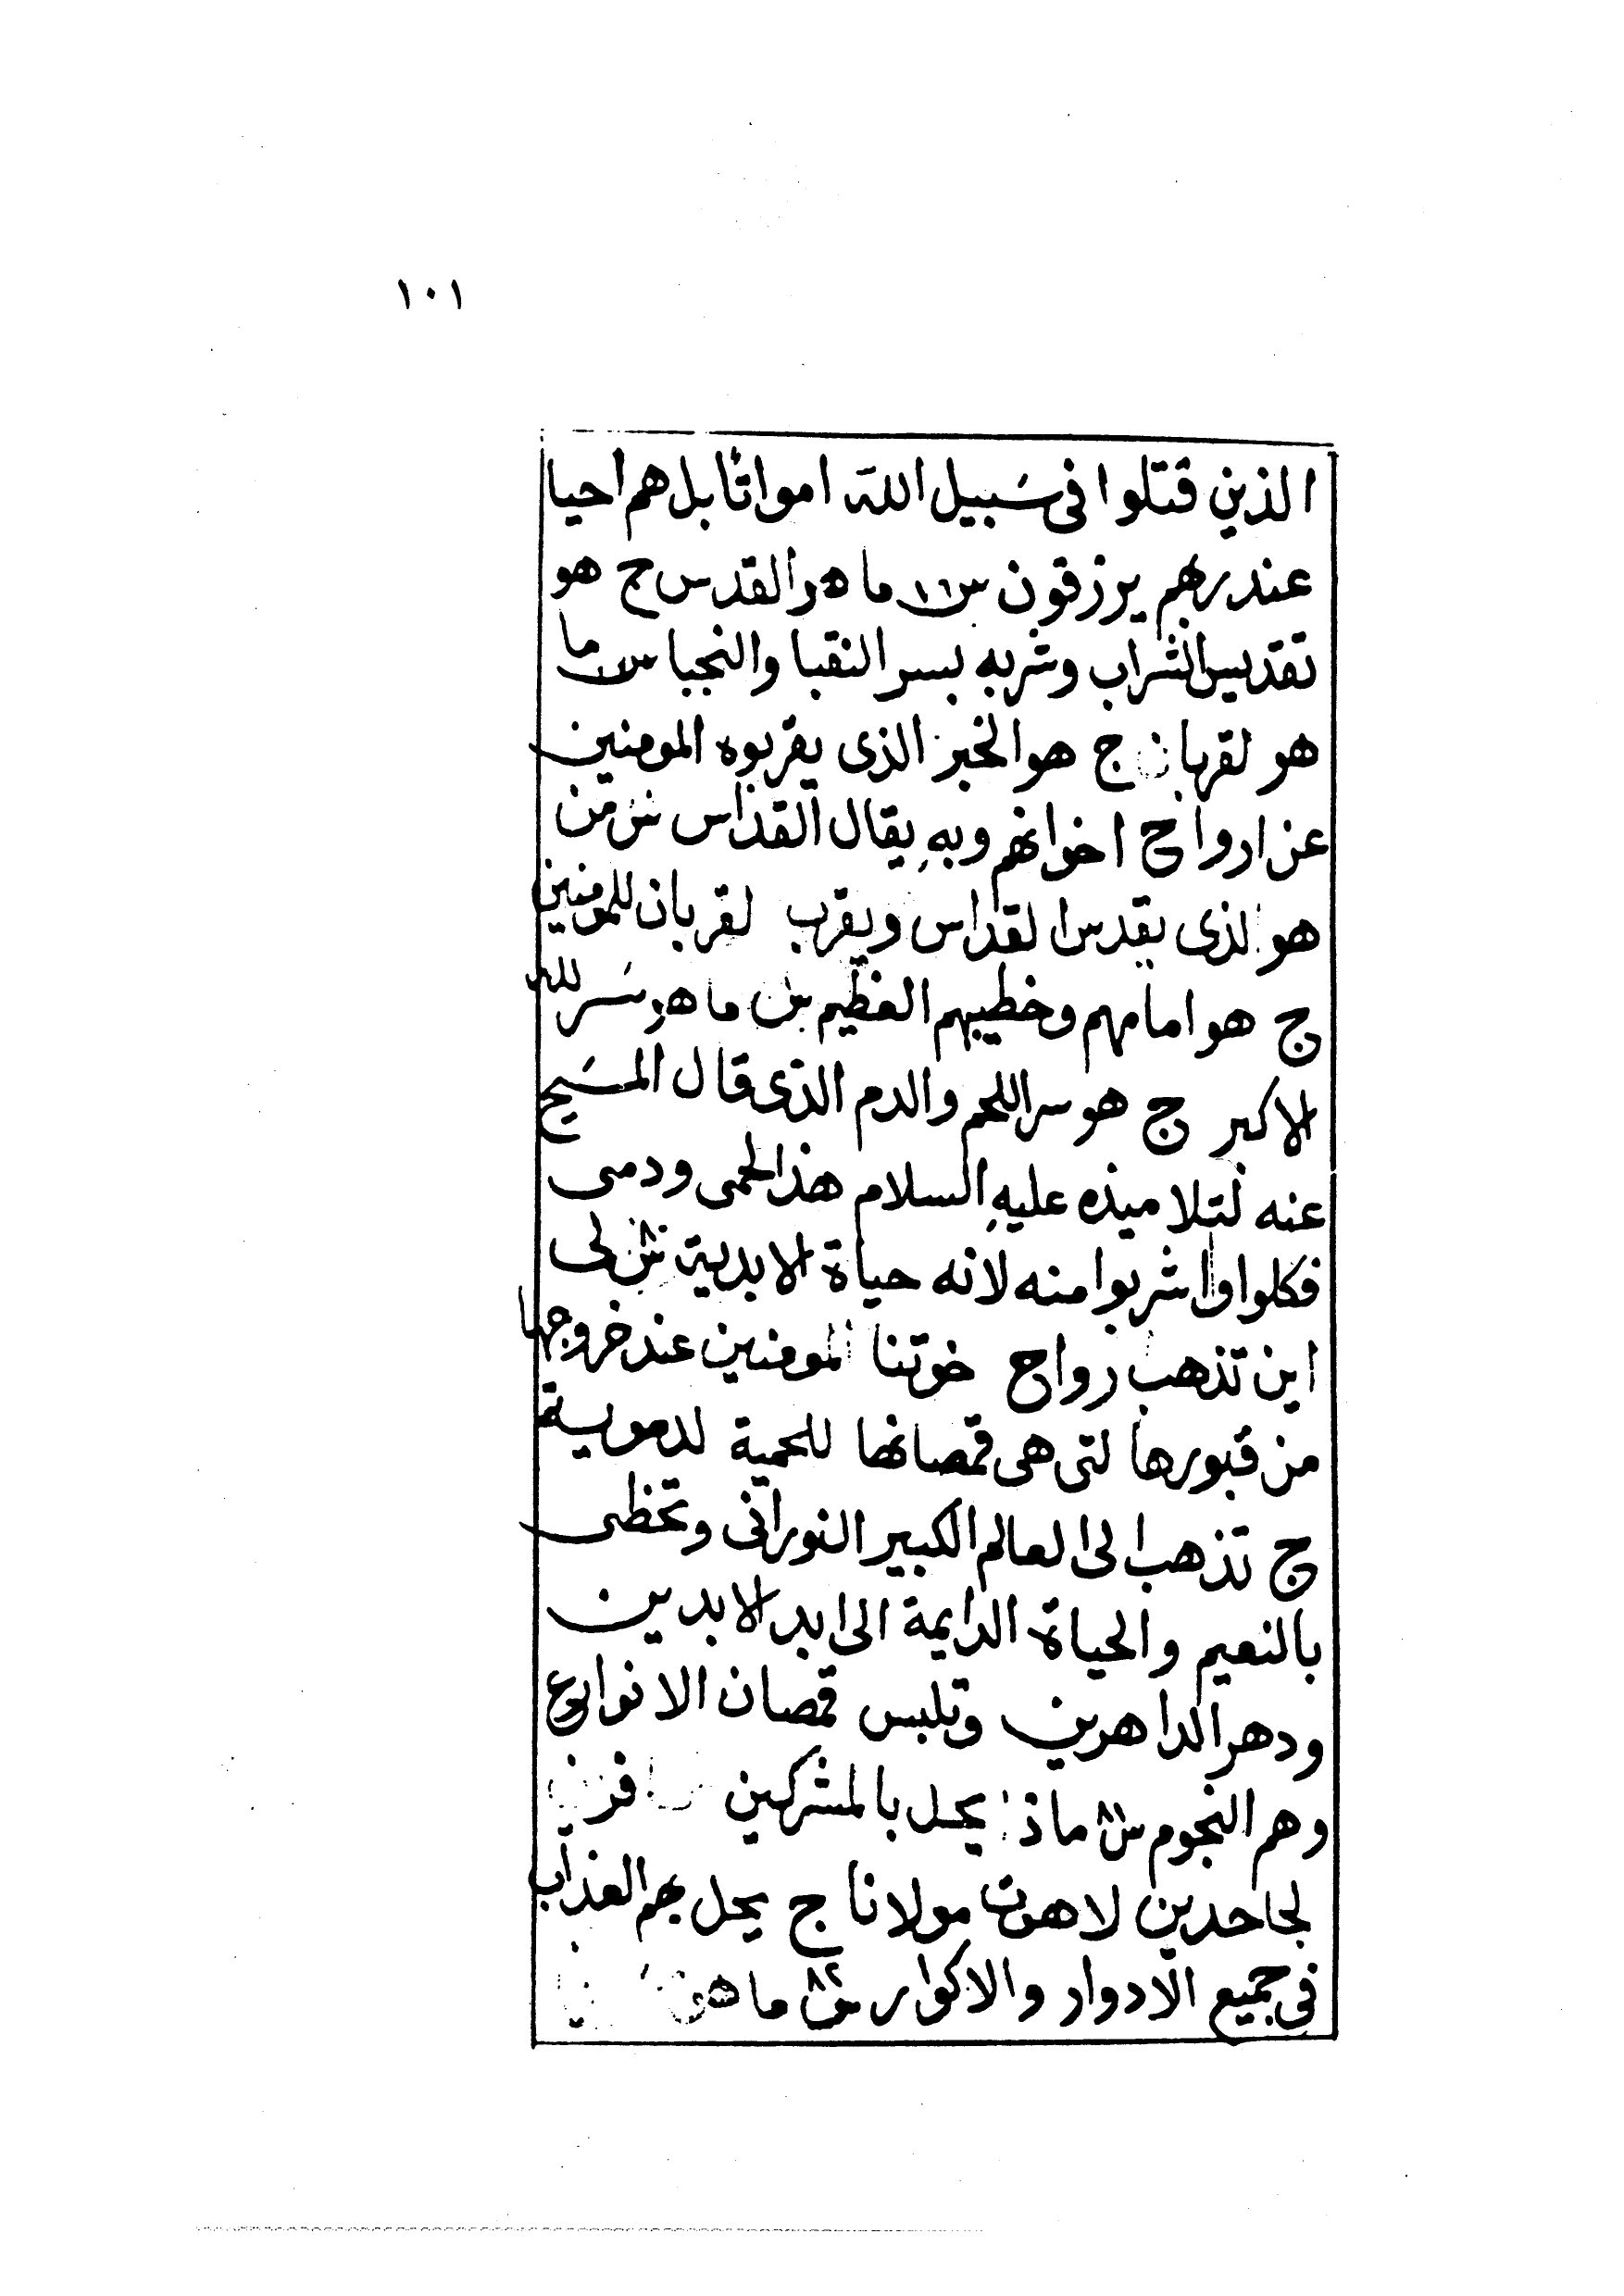 ١٠١
الذين قتلوا فى سَبيل الله امواتًا بل هم احيا
عند ربهم يرزقون س ما هو القدس ج هو
تقديس الشراب وشربه بسر النقبا والنجبا س ما
هو لقربان ج هو الخبز الذى يقربوه المومنين
عن ارواح اخوانهم وبهِ يقال القداس س من
هو لذى يقدس القداس ويقرب لقربان للمومنين
ج هو امامهم وخطيبهم العظيم س ما هو سَر لله
الاكبر ج هو سر اللحم والدم الذى قال المسَيح
عنه لتلاميذه عليهِ السلام هذا لحمى ودمى
فكلوا واشربوا منه لانه حياة الابدية س لى
اين تذهب رواح خوتنا لمومنين عند خروجها
من قبورها لتى هى قمصانها للحمية لدموية
ج تذهب الى العالم الكبير النورانى وتحظى
بالنعيم والحياة الدايمة الى ابد الابدين
ودهر الداهرين وتلبس قمصان الانوار
وهم النجوم س ماذا يحل بالمشركين
لجاحدين لاهوت مولانا ج يحل بهم العذاب
فى جميع الادوار والاكوار س٨٢ ما هو